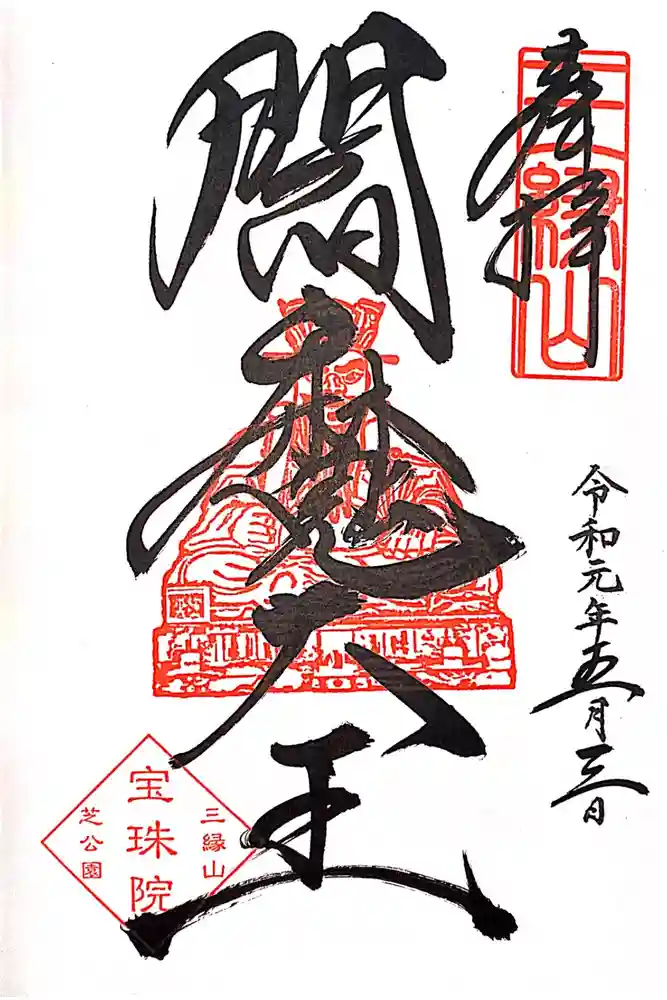 奉拝
三縁山
令和元年五月三日
閻魔大王
三縁山
宝珠院
芝公園